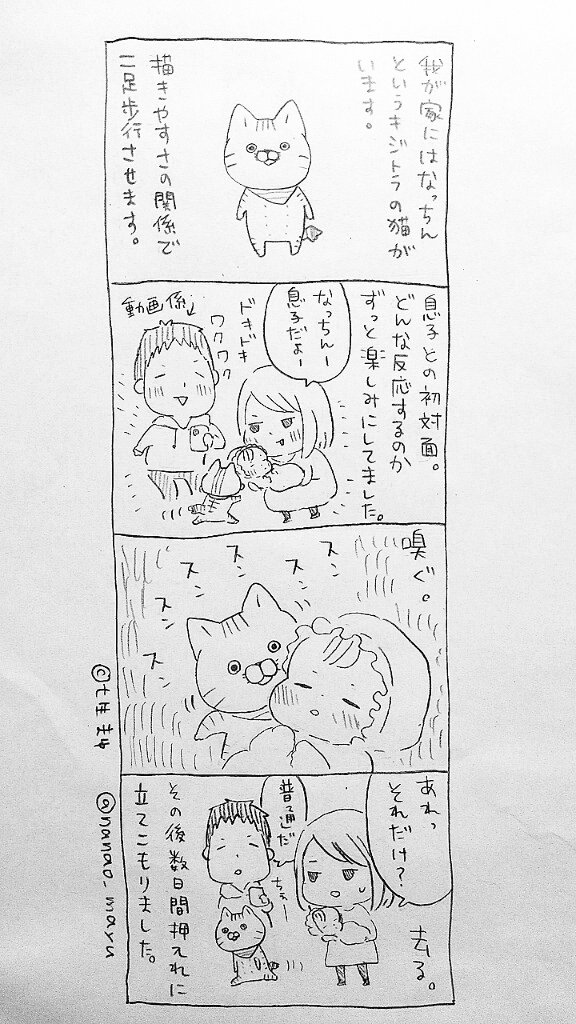 我が家にはなっちん
というキジトラの猫が
います。
描きやすさの関係で
二足歩行させます。
息子との初対面。
どんな反応するのか
ずっと楽しみにしてました。
なっちんー
息子だよー
ドキドキ
ワクワク
動画係↓
嗅ぐ。
スン
スン
スン
スン
スン
スン
スン
あれっ
それだけ?
普通だ
ちぇー
去る。
その後数日間押入れに
立てこもりました。
@nanao_maru